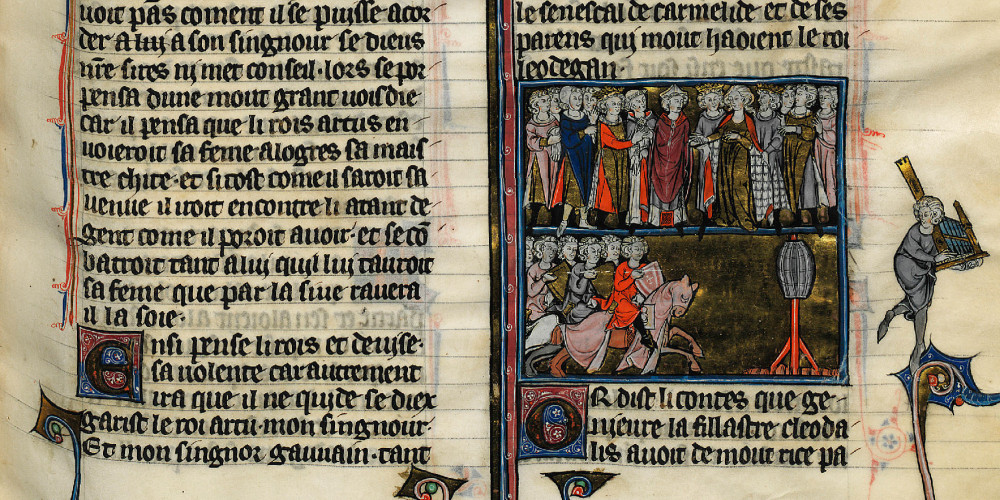 uoit pas coment il se puisse acor
der a lui a son singnour se diens
nr̄e sires ni met conseil · lors se por
pensa dune mout grant uoisdie
car il pensa que li rois artus en
uoieroit sa feme a logres sa mais
tre chite · et si tost come il saroit sa
uenue il iroit encontre li a tant de
gent come il poroit auoir · et se cō
batroit tant a lui quil lui tauroit
sa feme que par la siue rauera
il la soie ·
Ensi pense li rois et deuise ·
sa uolente car autrement
ira que il ne quide se diex
garist le roi artu · mon singnour
Et mon singnor gauuain · tant
le senescal de carmelide et de ses
parens qui mout haoient le roi
leodegan ·
OR dist li contes que ge-
nieure la fillastre cleoda
lis auoit de mout rice pa